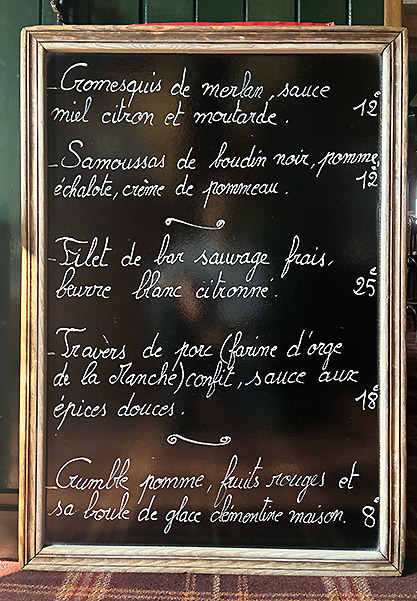 - Cromesquis de merlan, sauce
miel citron et moutarde. 12€
- Samoussas de boudin noir, pomme,
échalote, crème de pommeau. 12€
- Filet de bar sauvage frais,
beurre blanc citronné. 25€
- Travers de porc (farine d'orge
de la Manche) confit, sauce aux
épices douces. 18€
- Crumble pomme, fruits rouges et
sa boule de glace clémentine maison. 8€